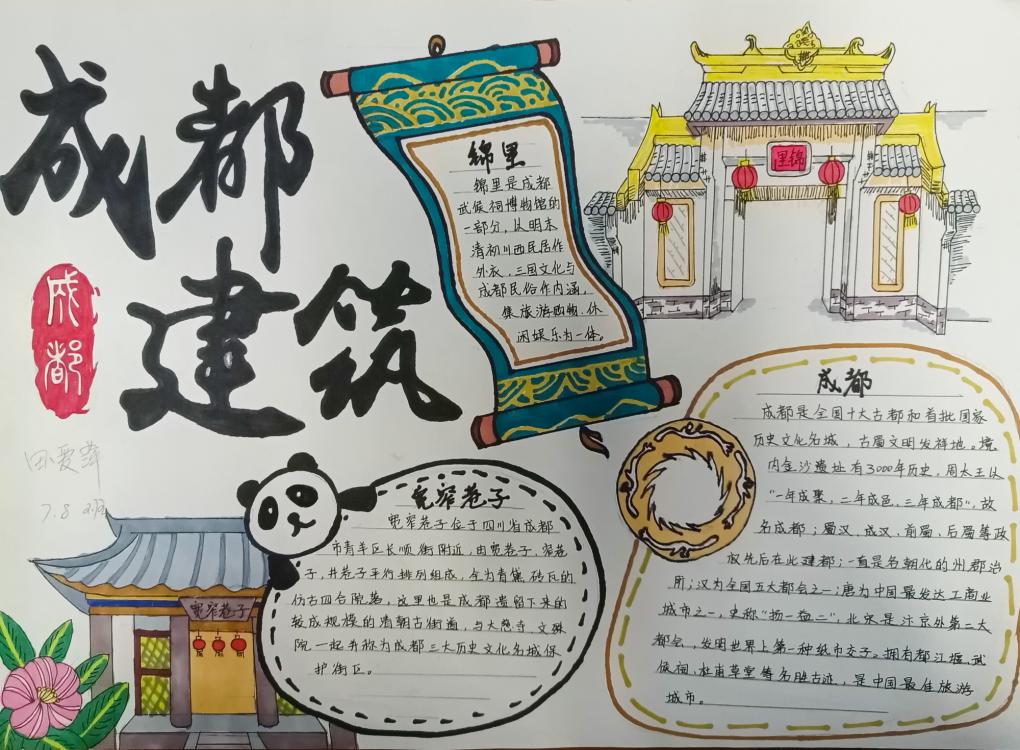 成都
建筑
成
都
田爱萍
7.8 2班
锦里
锦里是成都
武侯祠博物馆的
一部分，以明末
清初川西民居作
外衣，三国文化与
成都民俗作内涵，
集旅游购物、休
闲娱乐为一体。
锦里
宽窄巷子
宽窄巷子位于四川省成都
市青羊区长顺街附近，由宽巷子、窄巷
子、井巷子平行排列组成，全为青黛砖瓦的
仿古四合院落，这里也是成都遗留下来的
较成规模的清朝古街道，与大慈寺、文殊
院一起并称为成都三大历史文化名城保
护街区。
宽窄巷子
成都
成都是全国十大古都和首批国家
历史文化名城，古蜀文明发祥地。境
内金沙遗址有3000年历史，周太王以
“一年成聚，二年成邑，三年成都”，故
名成都；蜀汉、成汉、前蜀、后蜀等政
权先后在此建都；一直是各朝代的州郡治
所；汉为全国五大都会之一；唐为中国最发达工商业
城市之一，史称“扬一益二”；北宋是汴京外第二大
都会，发明世界上第一种纸币交子。拥有都江堰、武
侯祠、杜甫草堂等名胜古迹，是中国最佳旅游
城市。